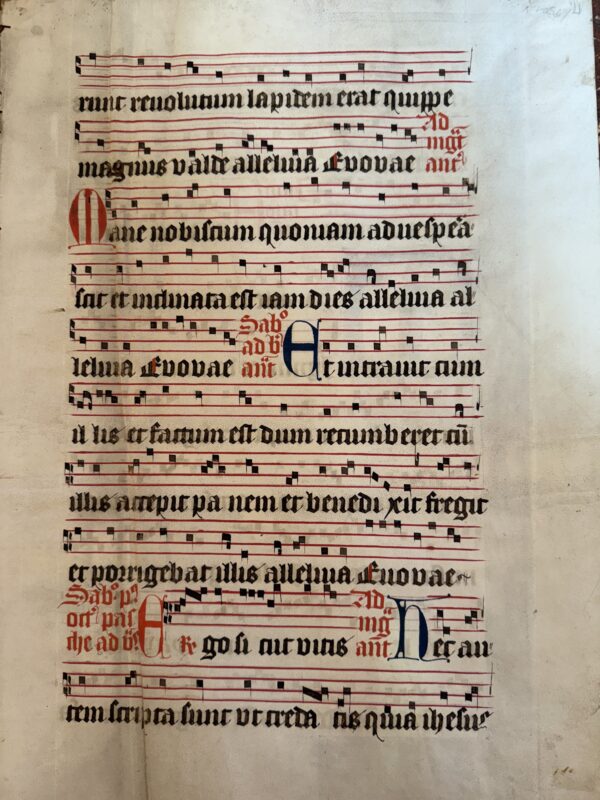 runt reuolutum lapidem erat quippe
magnus valde alleluia Evovae Ad mgͭ antͨ
Mane nobiscum quoniam aduespeā
scit et inclinata est iam dies alleluia al
leluia Evovae Sabͦ ad bͫ anͭ Et intrauit cum
il lis et factum est dum recumberet cū
illis accepit pa nem et benedi xit fregit
et porrigebat illis alleluia Euovae
Sabͦ pͦ octͣ pas che ad bͫ E R go si cut vitis Ad mg anͭ Hec au
tem scripta sunt vt creda tis quia ihesus